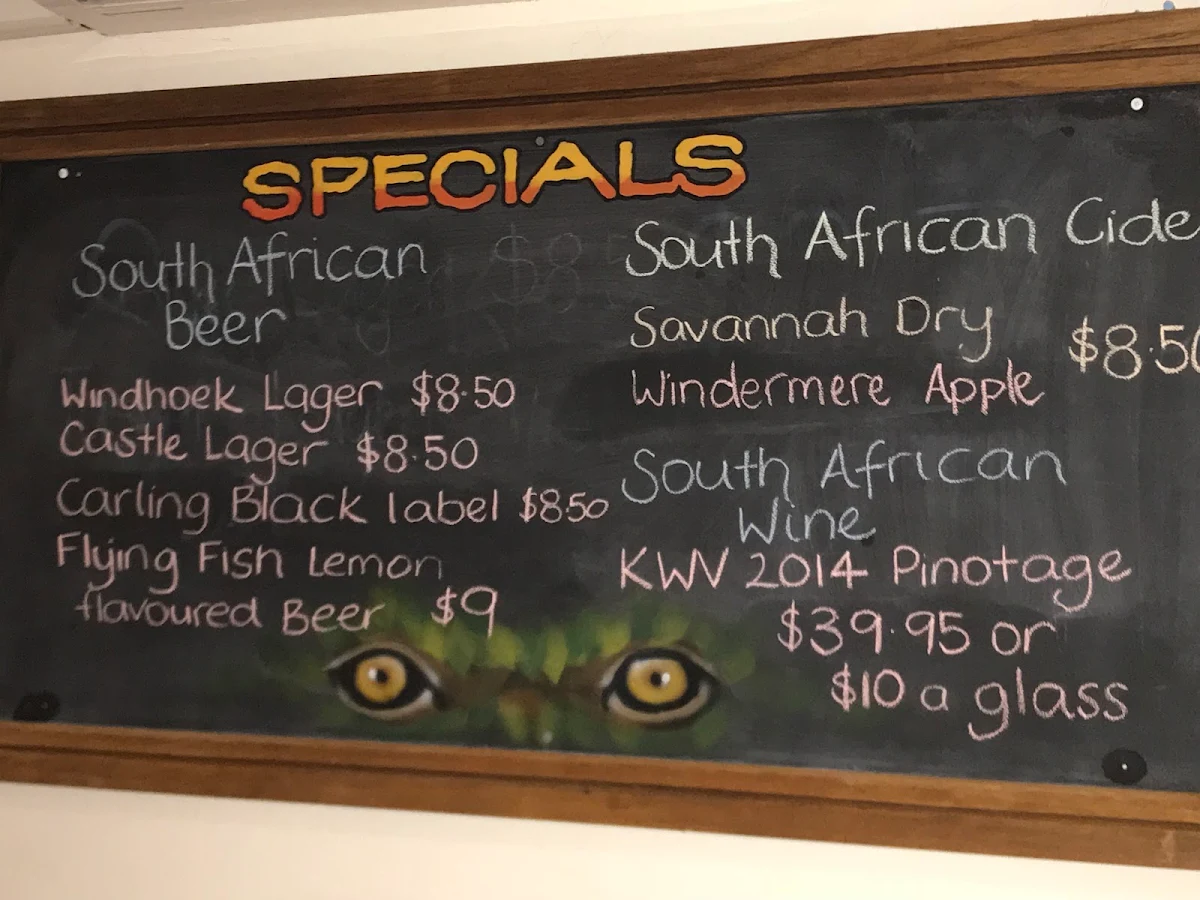 SPECIALS
South African
Beer
Windhoek Lager $8.50
Castle Lager $8.50
Carling Black label $8.50
Flying Fish Lemon
flavoured Beer $9
South African Cide
Savannah Dry
$8.50
Windermere Apple
South African
Wine
KWV 2014 Pinotage
$39.95 or
$10 a glass